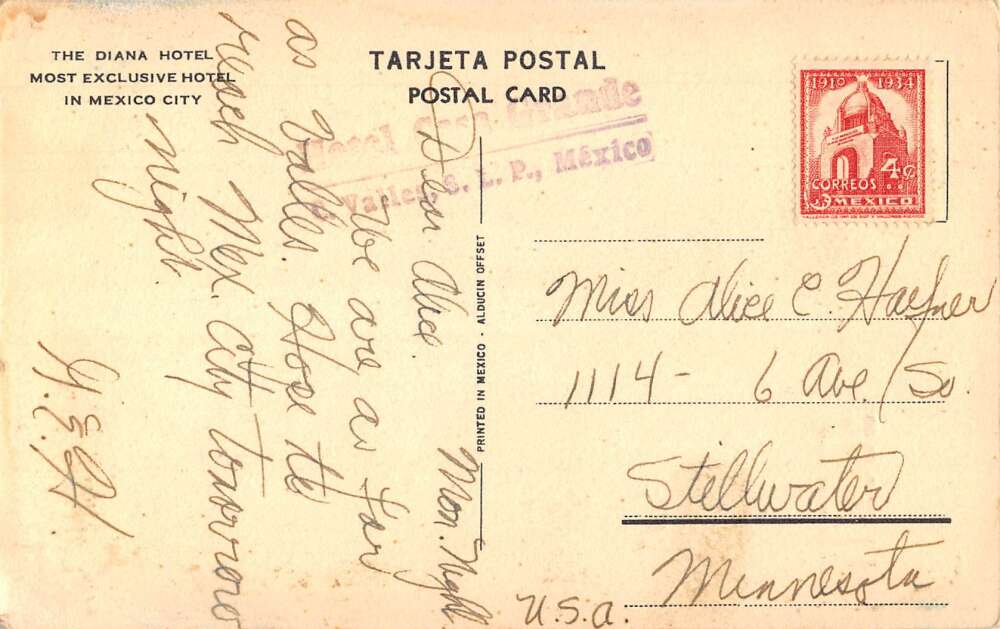 THE DIANA HOTEL
MOST EXCLUSIVE HOTEL
IN MEXICO CITY
TARJETA POSTAL
POSTAL CARD
Hotel Casa Grande
C. Valles, S. L. P., México
1910 1934
4¢
CORREOS
MEXICO
Mon. Night
Dear Alice.
We are as far
as Valles. Hope to
reach Mex. City tomorrow
night
PRINTED IN MEXICO - ALDUCIN OFFSET
Miss Alice C. Haefner
1114 - 6 Ave. So.
Stillwater
Minnesota
U.S.A.